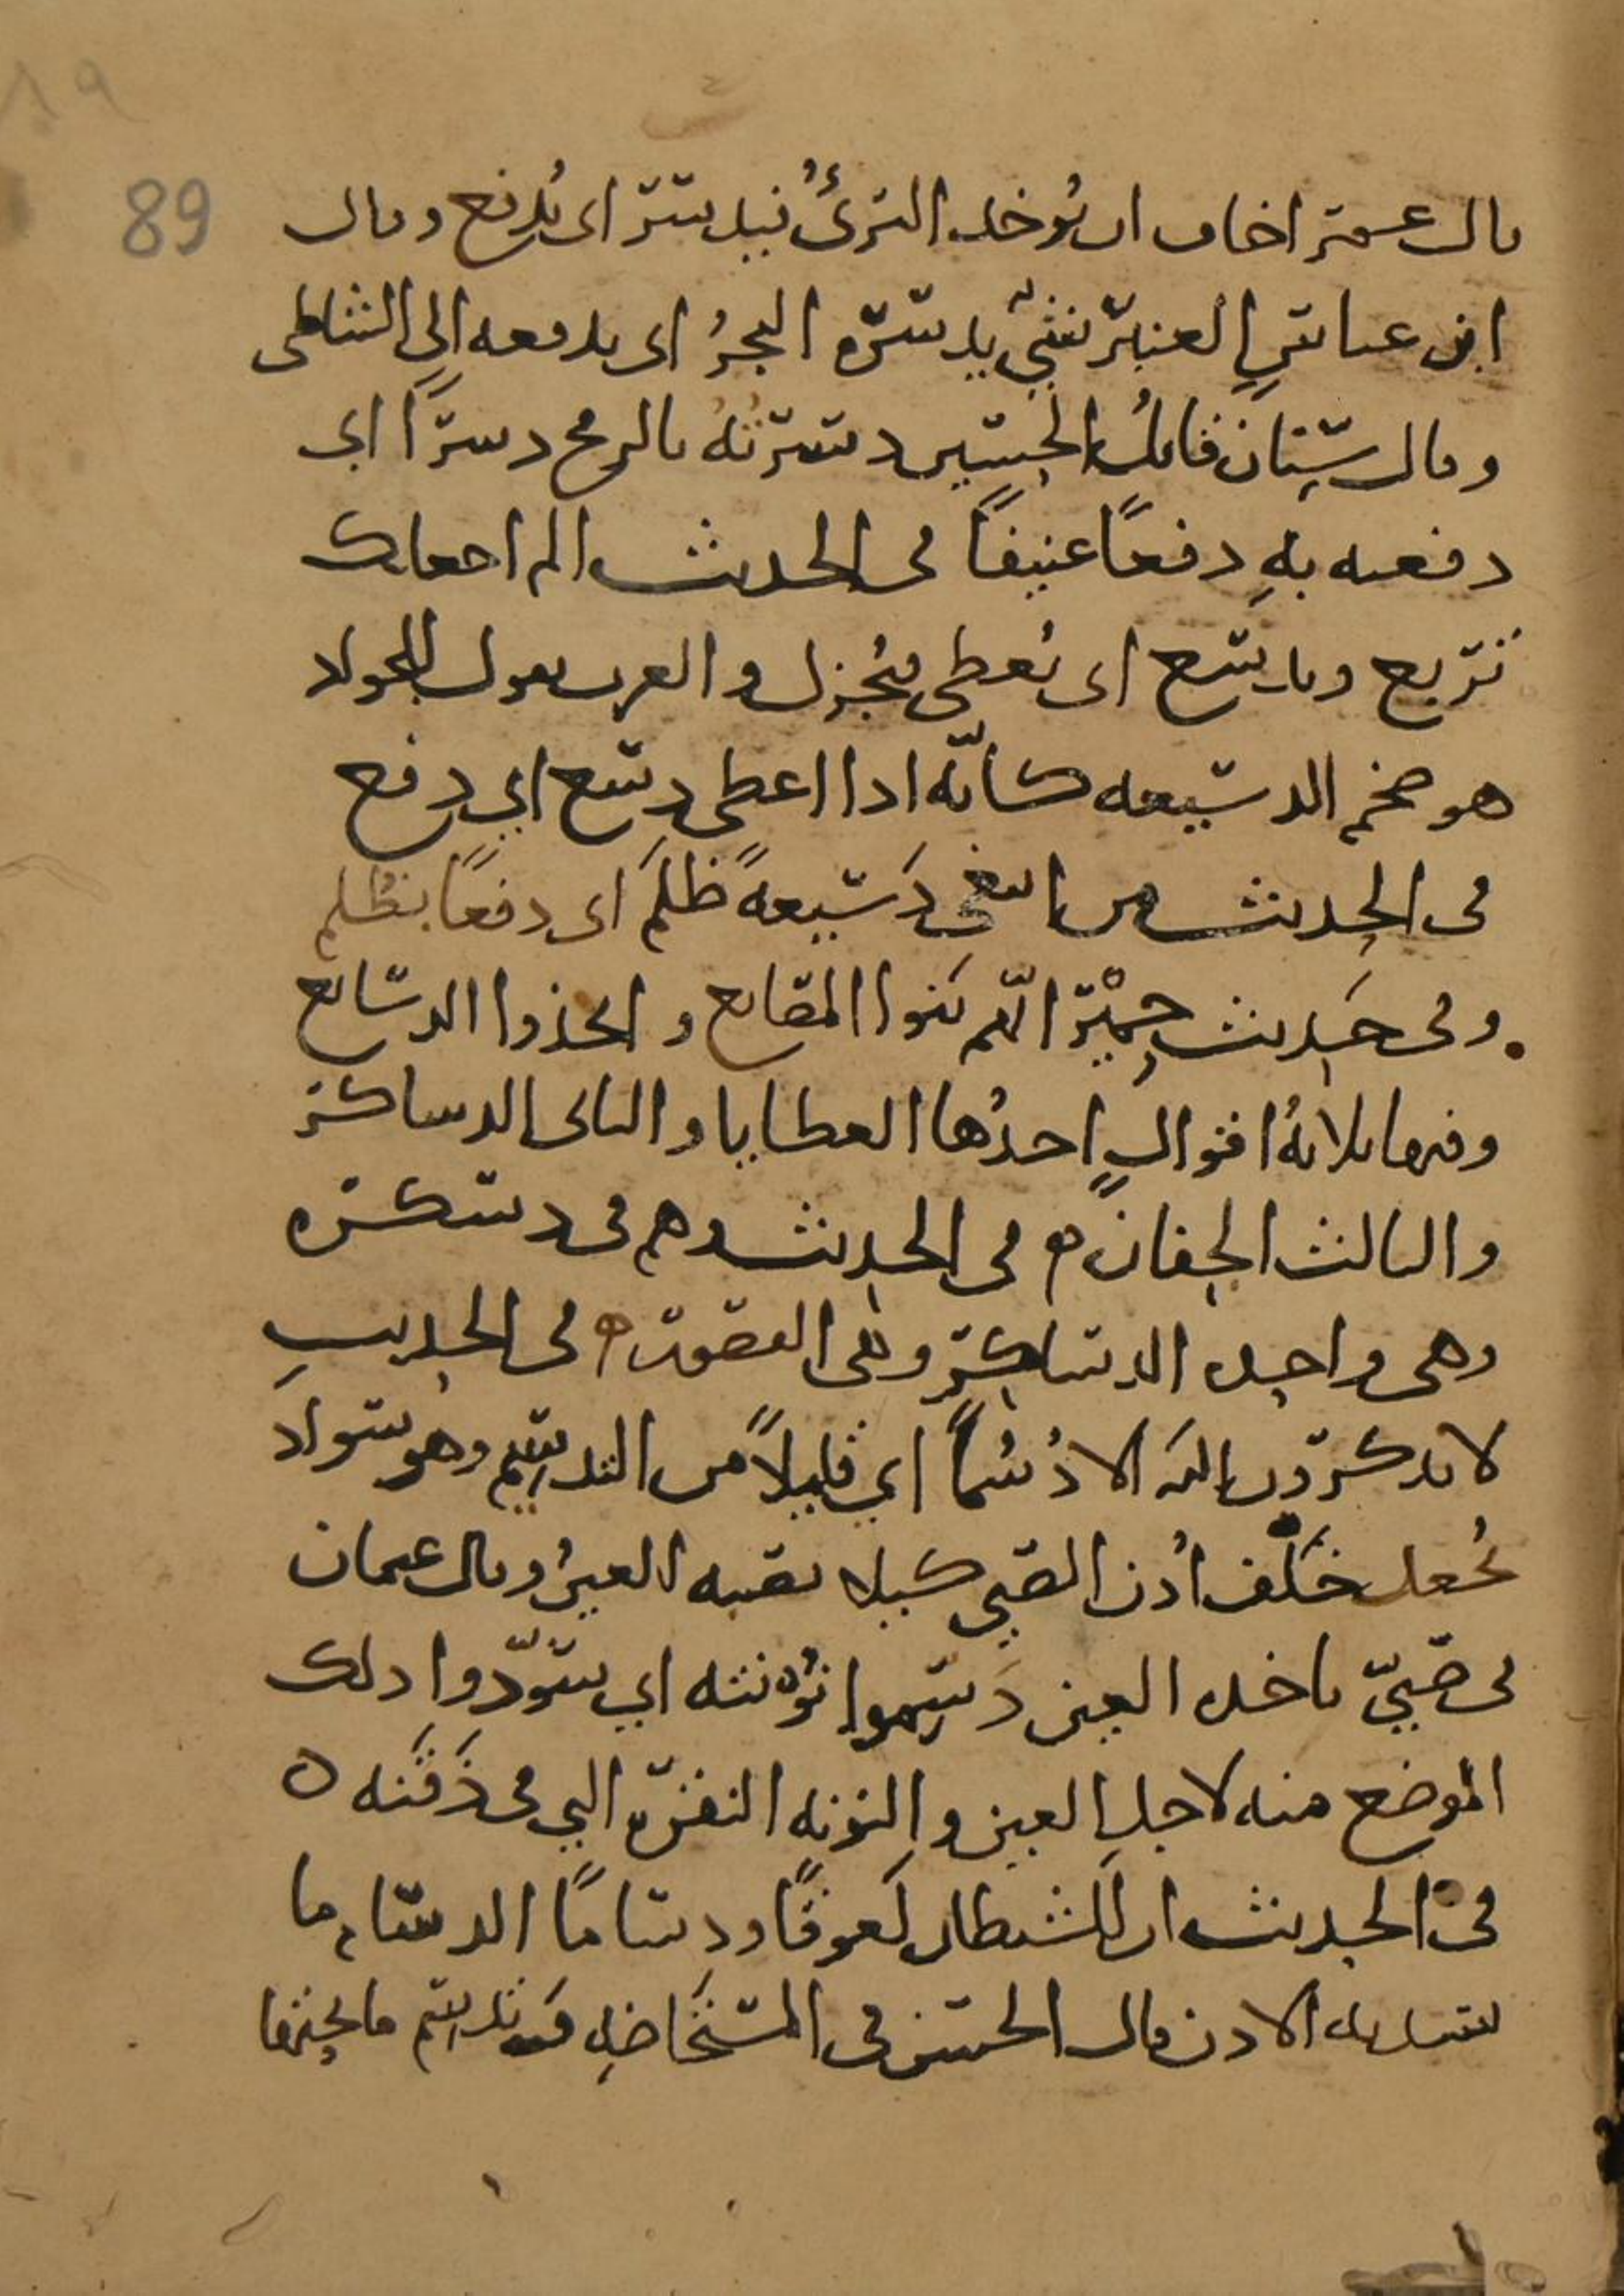 89
قال عمر اخاف ان يُوخذ البرئُ فيدسر اى يُدفع وقال
ابن عباسٍ العنبر شيٌ يدسره البحرُ اى يدفعه الى الشاطى
وقال سِنان قاتلُ الحسين دسرتُهُ بالرمح دسرًا اى
دفعته بهِ دفعًا عنيفًا فى الحديث الم اجعلك
تربع وتدسع اى تُعطى فتُجزل والعرب تقول للجواد
هو ضخم الدسيعه كانّه اذا اعطى دسع اي دفع
فى الحديث من ابتغى دَسيعةَ ظُلمٍ اى دفعًا بظُلم
وفى حَديث حِمْيَر انهم بَنوا المصانع واتخذوا الدسائع
وفيها ثلاثةُ اقوالٍ احدُها العطايا والثانى الدساكر
والثالث الجفان ه فى الحديث وهم فى دسكره
وهى واحده الدساكر وهى القصور ه فى الحديثِ
لا يذكرون الله الا دُسُمًا اي قليلاً من التدسيم وهو سواد
يُجعل خَلف اُذن الصبي كيلا تصيبه العينُ وقال عثمان
فى صَبيّ تاخذه العين دَسِّموا نُونته اي سوّدوا ذلك
الموضع منه لاجل العين والنونه النقره التي فى ذَقَنه ه
فى الحديث ان للشيطان لَعوقًا ودِسامًا الدسام ما
تُسد به الاذن قال الحسن فى المستَحاضه تدسم ما تحتها